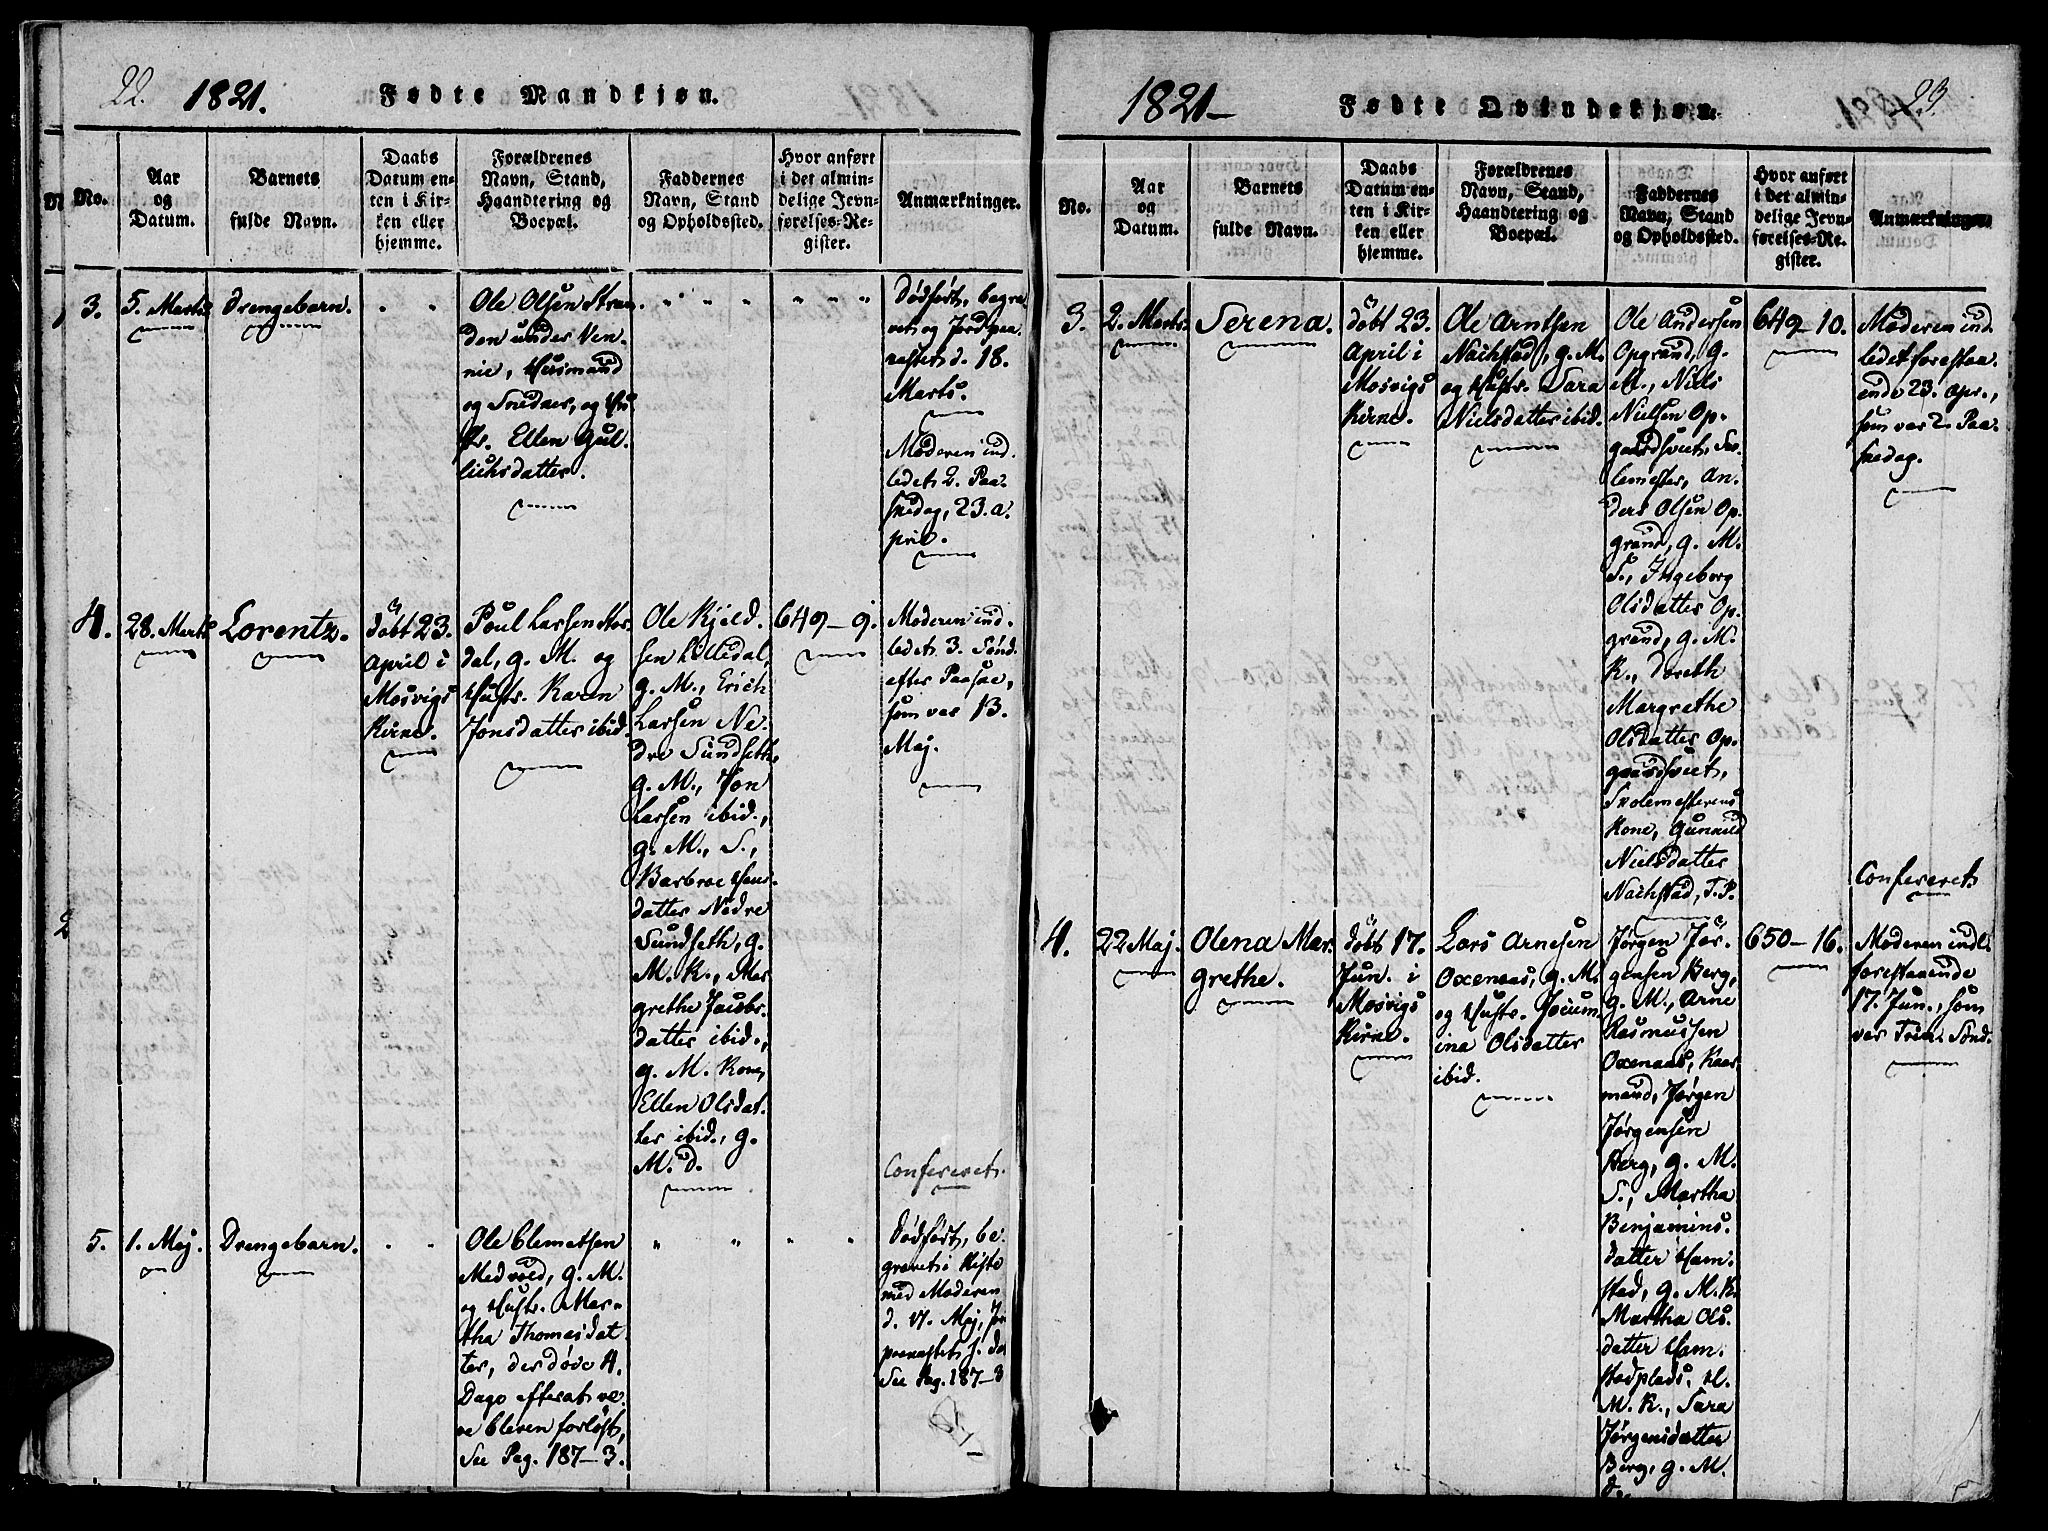 22.
1821.
Fødte Mandkjøn.
No.
Aar
og
Datum.
Barnets
fulde Navn.
Daabs
Datum en-
ten i Kir-
ken eller
hjemme.
Forældrenes
Navn, Stand,
Haandtering og
Boepæl.
Faddernes
Navn, Stand
og Opholdssted.
Hvor anført
i det almin-
delige Jevn-
førelses-Re-
gister.
Anmærkninger.
3.
5. Marts
Drengebarn.
Ole Olsen Stran
den under Ven-
nie, Huusmand
og Snedker, og Hu
str. Ellen Gul-
lichsdatter.
Dødfødt, begra
vet og Jord paa
kastet d. 18.
Marts.
Moderen ind-
ledet 2. Paa-
skedag, 23. A-
pril.
4.
28. Marts
Lorentz.
døbt 23.
April i
Mosvigs
Kirke.
Poul Larsen Stor-
dal, g. M. og
Hustr. Karen
Jonsdatter ibid.
Ole Kjeld-
sen Lilledal,
g. M., Erich
Larsen Ne-
dre Sundseth,
g. M., Jon
Larsen ibid.,
g. M., S.,
Barbroe Hans-
datter Nedre
Sundseth, g.
M. K., Mar-
grethe Jacobs-
datter ibid.,
g. M. Kone,
Ellen Olsdat-
ter ibid., g.
M. d.
649-9.
Moderen ind-
ledet 3. Sønd.
efter Paaske,
som var 13.
Maj.
Confereret.
5.
1. Maj.
Drengebarn.
Ole Clemetsen
Medvold, g. M.
og Hustr. Mar-
tha Thomasdat
ter, der døde 4.
Dage efterat væ-
re bleven forløst,
See Pag. 187-3.
Dødfødt, be-
gravet i Kiste
med Moderen
d. 17. Maj,
paakastet s. D.
See Pag. 187-3
1821-
Fødte Qvindekjøn.
23.
No.
Aar
og
Datum.
Barnets
fulde Navn.
Daabs
Datum en-
ten i Kir-
ken eller
hjemme.
Forældrenes
Navn, Stand,
Haandtering og
Boepæl.
Faddernes
Navn, Stand
og Opholdssted.
Hvor anført
i det almin-
delige Jevn-
førelses-Re-
gister.
Anmærkninger.
3.
2. Marts.
Serena.
døbt 23.
April i
Mosvigs
Kirke.
Ole Arntsen
Nachstad, g. M.
og Hustr. Sara
Nielsdatter ibid.
Ole Andersen
Opgrand, g.
M., Niels
Nielsen Op-
gaardhvet, Sco-
lemester, An-
ders Olsen Op-
grand, g. M.
S., Ingeborg
Olsdatter Op-
grand, g. M.
K., Doreth
Margrethe
Olsdatter Op-
gaardhvet,
Skolemesterens
Kone, Gunnild
Nielsdatter
Nachstad, T. P.
649-10.
Moderen ind-
ledet forestaa-
ende 23. Apr.,
som var 2. Paa-
skedag.
Confereret.
4.
22 Maj.
Olena Mar-
grethe.
døbt 17.
Jun. i
Mosvigs
Kirke.
Lars Arnesen
Oxenaas, g. M.
og Hustr. Jocum-
ina Olsdatter
ibid.
Jørgen Jør-
gensen Berg,
g. M., Arne
Rasmussen
Oxenaas, Kaar-
mand, Jørgen
Jørgensen
Berg, g. M.
S., Martha
Benjamins-
datter Ham-
stad, g. M. K.
Martha Ols-
datter Ham-
stadplads, H.
M. K., Sara
Jørgensdatter
Berg, g. M.
d.
650-16.
Moderen indl.
forestaaende
17. Jun., som
var Trin. Sønd.